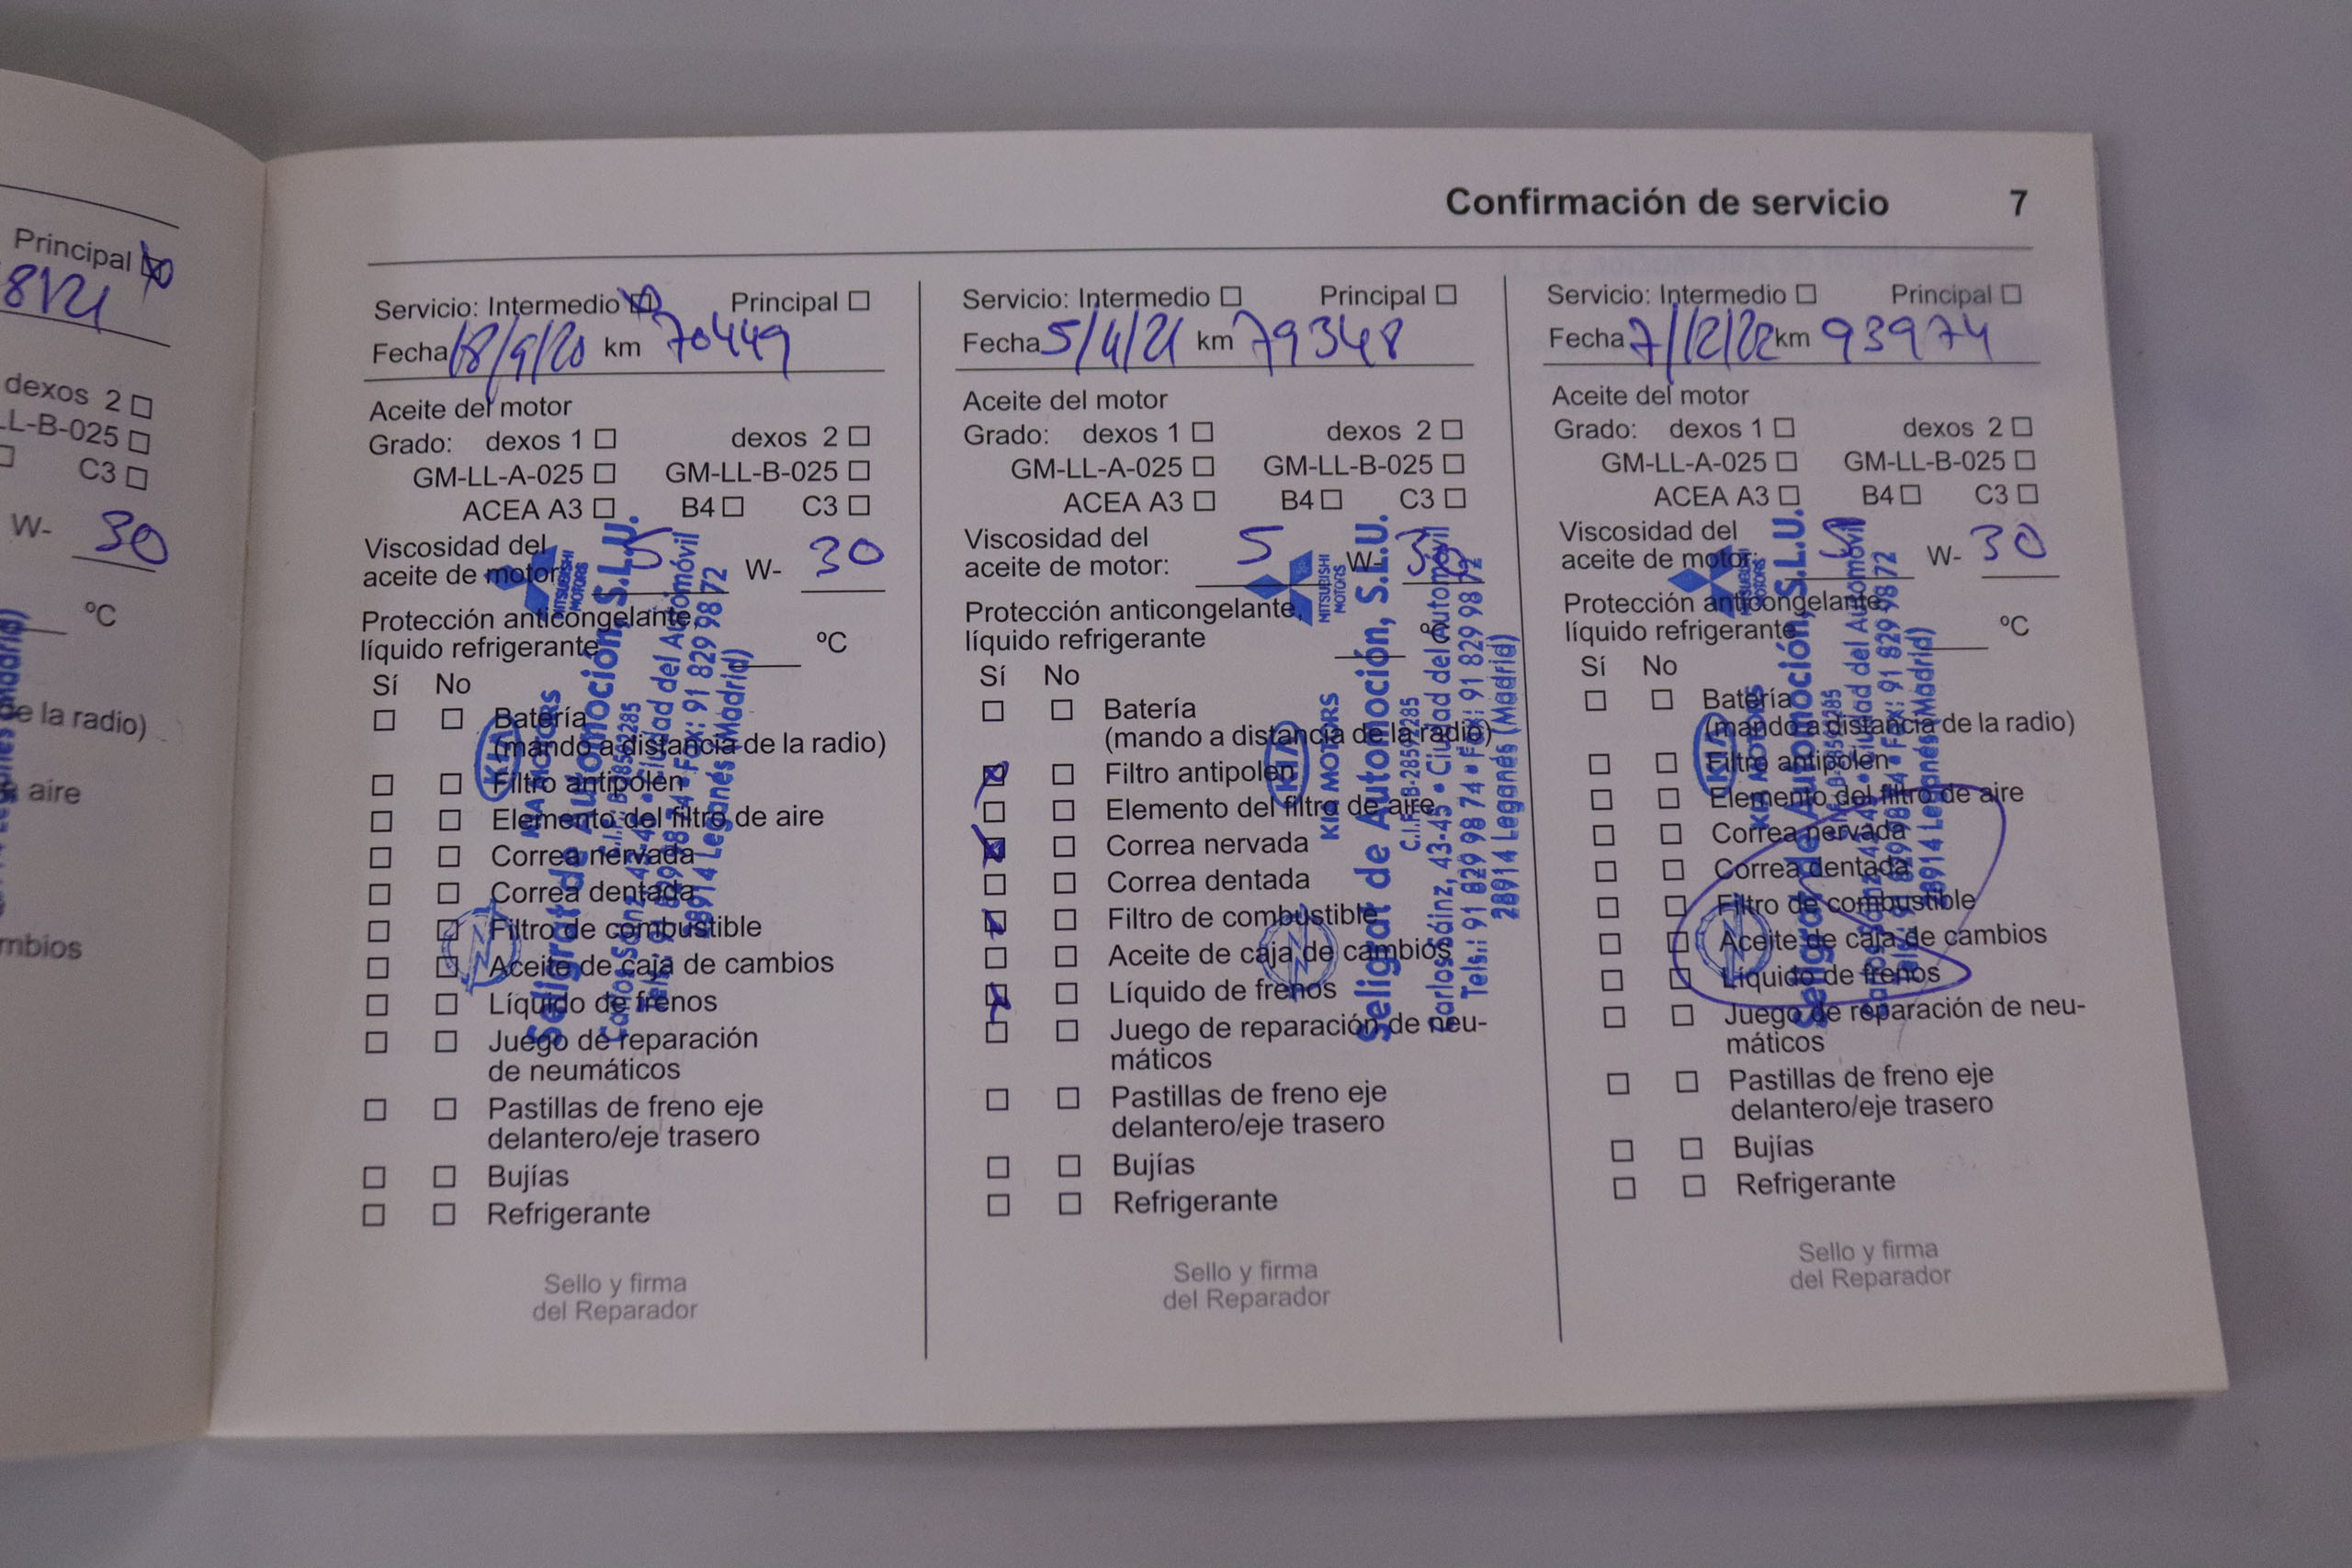 Principal
8121
dexos 2
LL-B-025
C3
W- 30
ºC
de la radio)
aire
mbios
Confirmación de servicio 7
Servicio: Intermedio Principal
Fecha 18/9/20 km 70449
Aceite del motor
Grado: dexos 1 dexos 2
GM-LL-A-025 GM-LL-B-025
ACEA A3 B4 C3
Viscosidad del
aceite de motor: 5 W- 30
Protección anticongelante,
líquido refrigerante ºC
Sí No
Batería
(mando a distancia de la radio)
Filtro antipolen
Elemento del filtro de aire
Correa nervada
Correa dentada
Filtro de combustible
Aceite de caja de cambios
Líquido de frenos
Juego de reparación
de neumáticos
Pastillas de freno eje
delantero/eje trasero
Bujías
Refrigerante
Sello y firma
del Reparador
MITSUBISHI
MOTORS
KIA
KIA MOTORS
Seligrat de Automoción, S.L.U.
Ciudad del Automóvil
Fax: 91 829 98 72
28914 Leganés (Madrid)
Servicio: Intermedio Principal
Fecha 5/4/21 km 79348
Aceite del motor
Grado: dexos 1 dexos 2
GM-LL-A-025 GM-LL-B-025
ACEA A3 B4 C3
Viscosidad del
aceite de motor: 5 W- 30
Protección anticongelante,
líquido refrigerante ºC
Sí No
Batería
(mando a distancia de la radio)
Filtro antipolen
Elemento del filtro de aire
Correa nervada
Correa dentada
Filtro de combustible
Aceite de caja de cambios
Líquido de frenos
Juego de reparación de neu-
máticos
Pastillas de freno eje
delantero/eje trasero
Bujías
Refrigerante
Sello y firma
del Reparador
MITSUBISHI
MOTORS
KIA
KIA MOTORS
Seligrat de Automoción, S.L.U.
C.I.F. B-28592285
Carlos Sáinz, 43-45 • Ciudad del Automóvil
Tels.: 91 829 98 74 • Fax: 91 829 98 72
28914 Leganés (Madrid)
Servicio: Intermedio Principal
Fecha 7/12/22 km 93974
Aceite del motor
Grado: dexos 1 dexos 2
GM-LL-A-025 GM-LL-B-025
ACEA A3 B4 C3
Viscosidad del
aceite de motor: W- 30
Protección anticongelante,
líquido refrigerante ºC
Sí No
Batería
(mando a distancia de la radio)
Filtro antipolen
Elemento del filtro de aire
Correa nervada
Correa dentada
Filtro de combustible
Aceite de caja de cambios
Líquido de frenos
Juego de reparación de neu-
máticos
Pastillas de freno eje
delantero/eje trasero
Bujías
Refrigerante
Sello y firma
del Reparador
MITSUBISHI
MOTORS
KIA
KIA MOTORS
Seligrat de Automoción, S.L.U.
Ciudad del Automóvil
Fax: 91 829 98 72
28914 Leganés (Madrid)